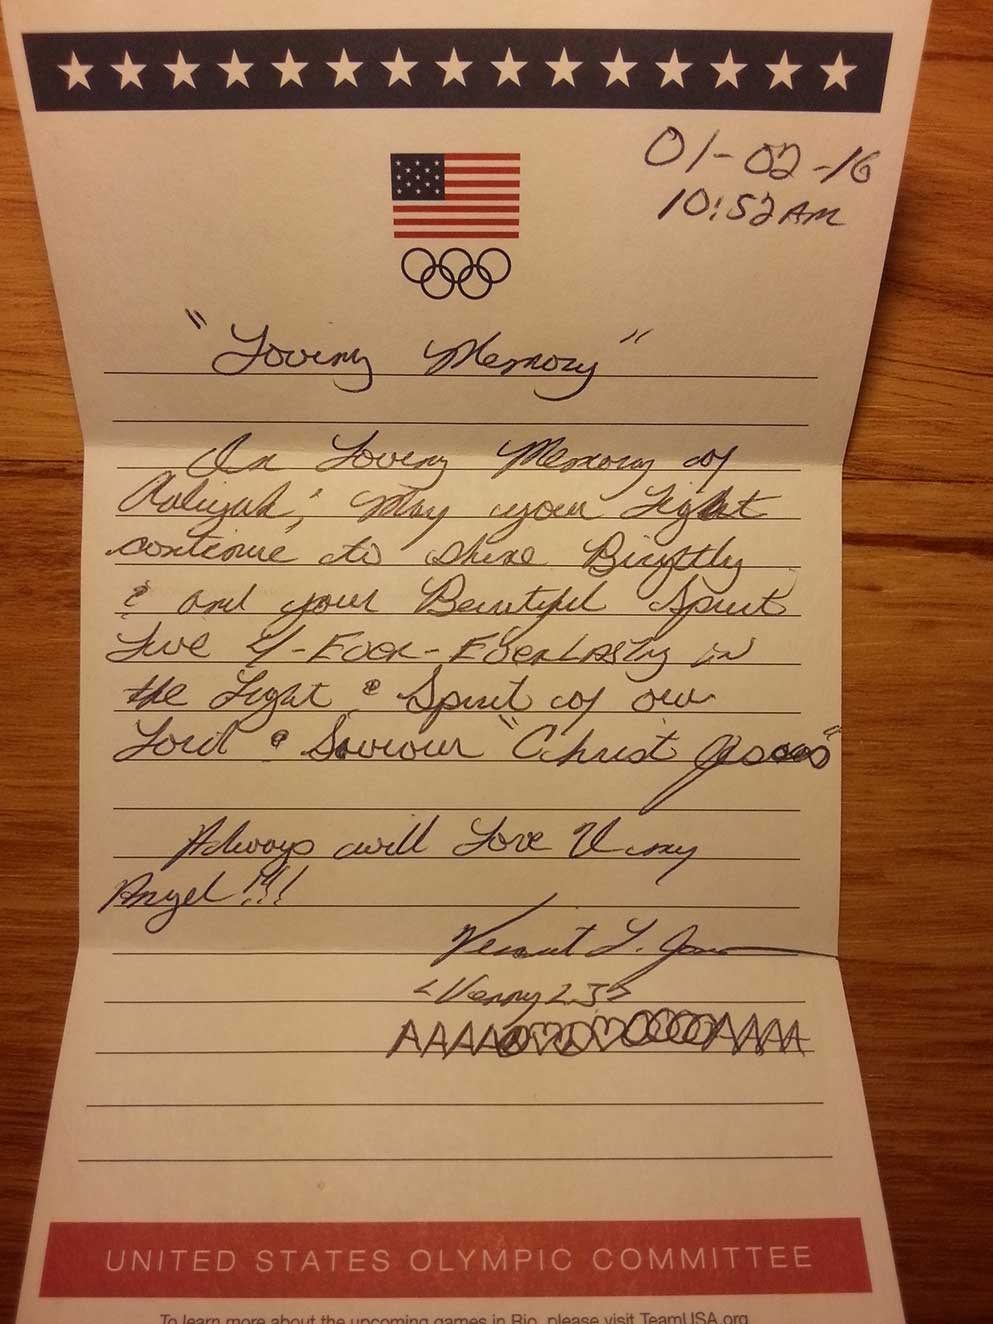 01-02-16
10:52 AM
"Loving Memory"
In Loving Memory of
Aaliyah; May your Light
continue to shine Brigtly
& and your Beautiful Spirit
Live 4-Ever-Everlasting in
the Light & Spirit of our
Lord & Saviour "Christ Jesus"
Always will Love U my
Angel!!!
L.
<Venny L J>
UNITED STATES OLYMPIC COMMITTEE
To learn more about the upcoming games in Rio, please visit TeamUSA.org